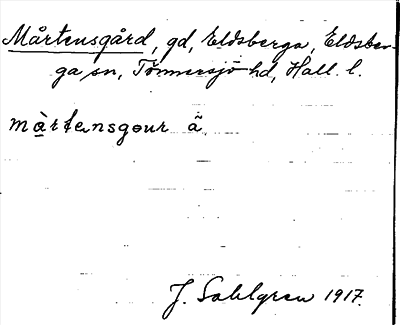 Mårtensgård, gd, Eldsberga, Eldsber-
ga sn, Tönnersjö hd, Hall. l.
màrtənsgəur ã
J. Sahlgren 1917.